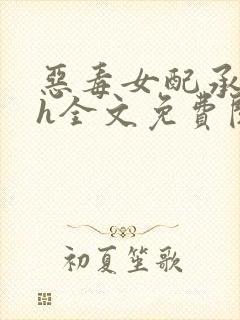 惡毒女配承
h全文免費
初夏笙歌